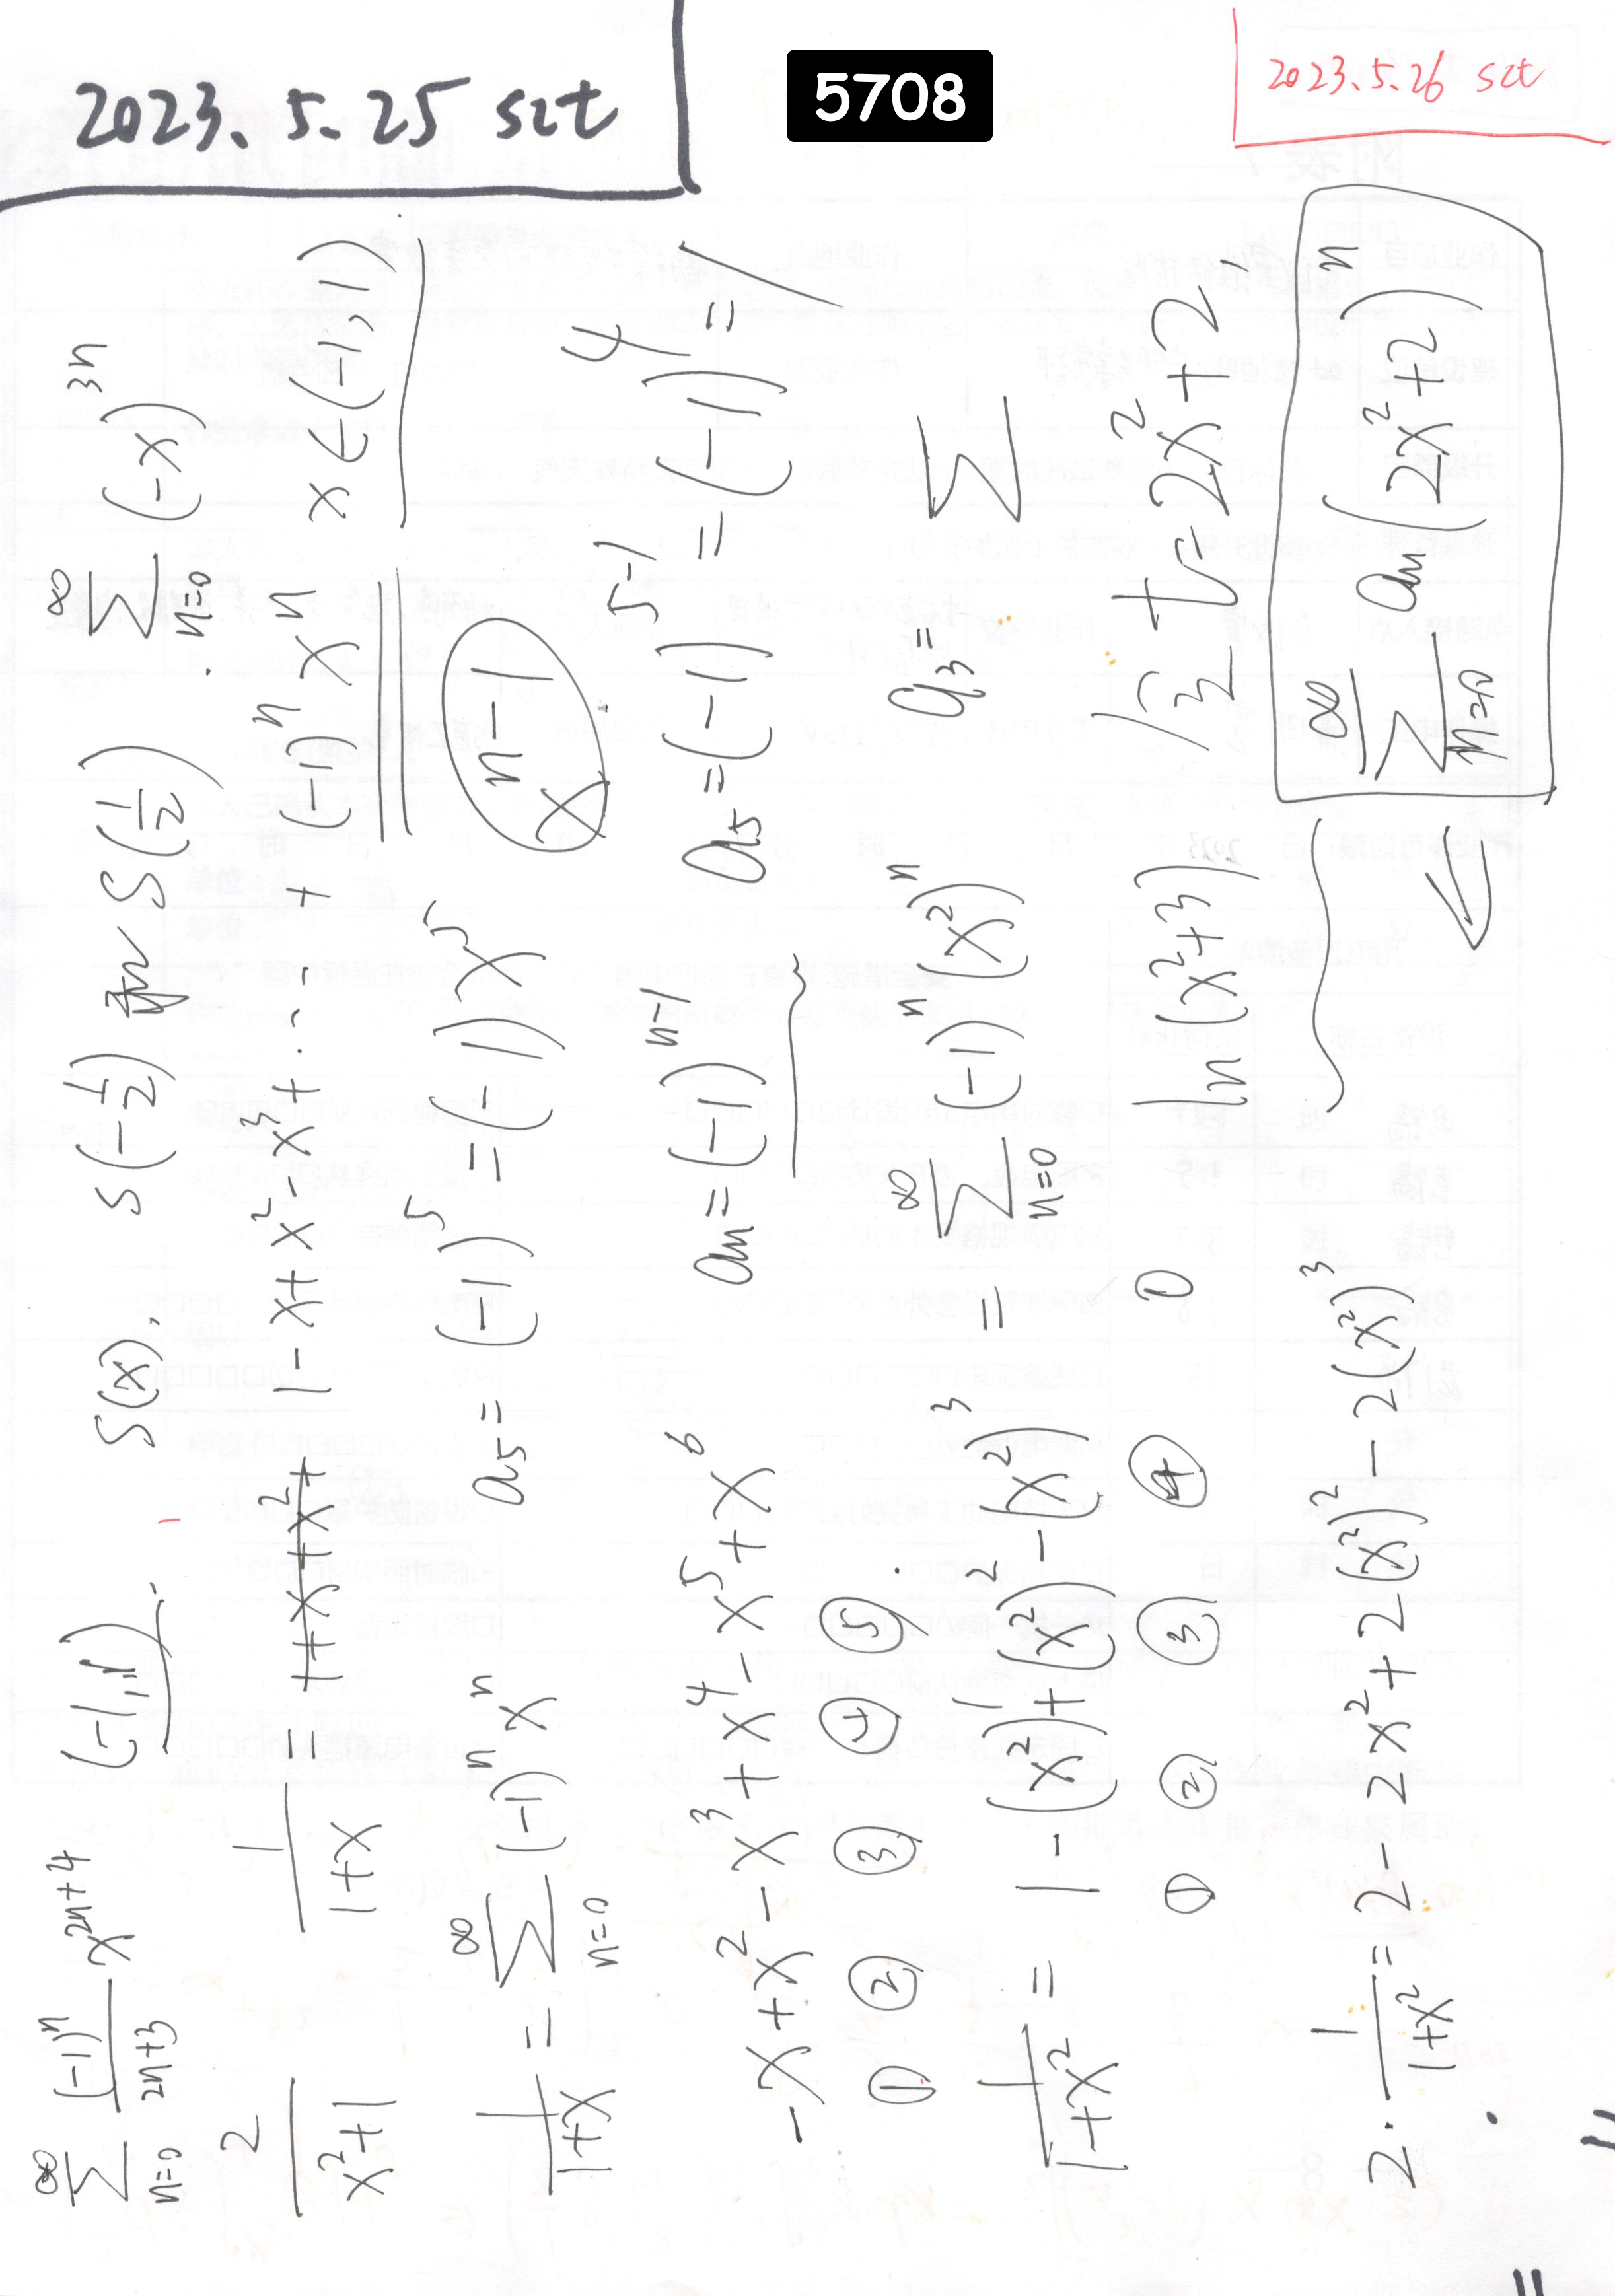 2023.5.25 sct
5708
2023.5.26 sct
∞ Σ n=0 (-1)^n/(2n+3) x^(2n+4) (-1,1) S(x), S(-1/2) 和 S(1/2) Σ n=0 ∞ (-x)^3n
2/(x²+1) 1/(1+x) = 1-x+x²-x³+...+(-1)^n x^n x∈(-1,1)
1/(1+x) = Σ n=0 ∞ (-1)^n x^n a5=(-1)^5=(-1)x^5 x n-1
-x+x²-x³+x⁴-x⁵+x⁶ an=(-1)^(n-1) a5=(-1)^(5-1)=(-1)^4=1
① ② ③ ④ ⑤
1/(1+x²) = 1-(x²)^1+(x²)²-(x²)³ = Σ n=0 ∞ (-1)^n (x²)^n a3= Σ
① ② ③ ④ ① ln(x²+3) t=2x²+2
2·1/(1+x²)=2-2x²+2(x²)²-2(x²)³ Σ n=0 ∞ an(2x²+2)^n